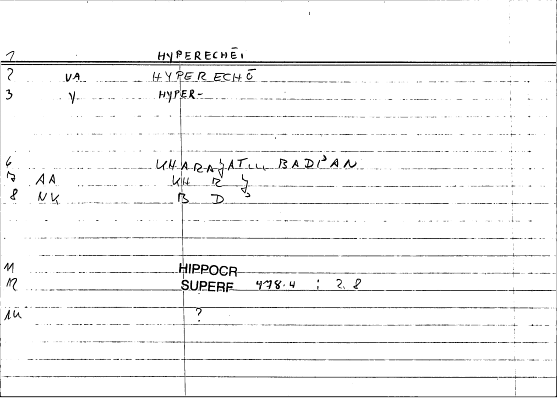 1 HYPERECHEĪ
2 VA HYPERECHŌ
3 V. HYPER-
6 KHARAǦAT... BADPAN
7 AA KH R Ǧ
8 NK B D
11 HIPPOCR
12 SUPERF 478.4 ; 2.8
14 ?